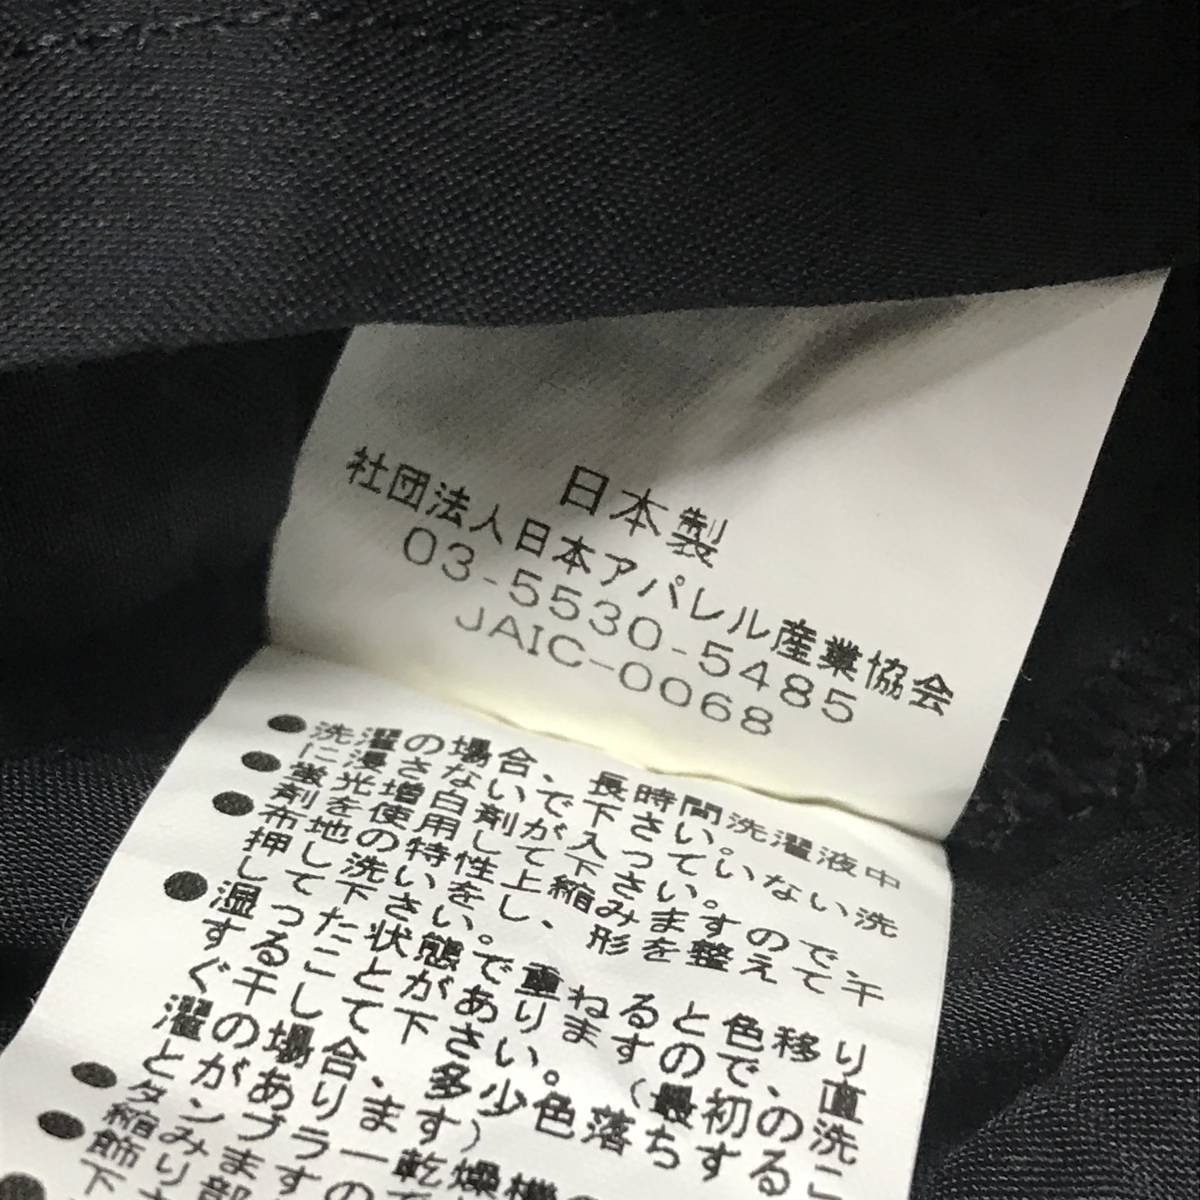 日本製
社団法人日本アパレル産業協会
03-5530-5485
JAIC-0068
●洗濯の場合、長時間洗濯液中
に浸さないで下さい。
●蛍光増白剤が入っていない洗
剤を使用して下さい。
●布地の特性上縮みますので、
押し洗いをし、形を整えて干
して下さい。
●湿った状態で重ねると色移り
することがありますので、直
ぐ干して下さい。(最初の洗
濯の場合、多少色落ちするこ
とがあります)
●タンブラー乾燥機の
縮みます
●飾り部
下